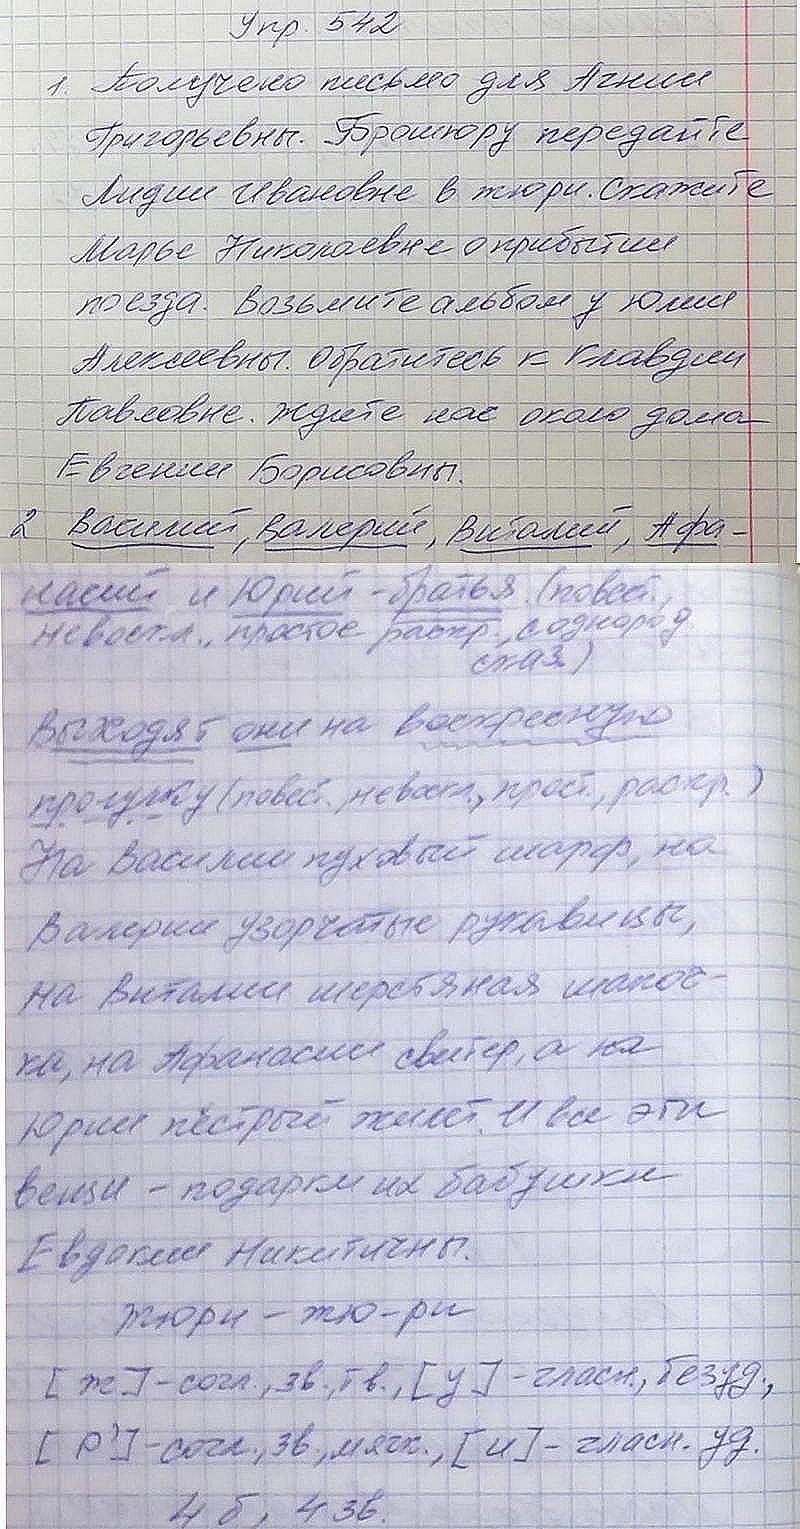 Упр. 542
1. Получено письмо для Агнии
Григорьевны. Брошюру передайте
Лидии Ивановне в жюри. Скажите
Марье Николаевне о прибытии
поезда. Возьмите альбом у Юлии
Алексеевны. Обратитесь к Клавдии
Павловне. Ждите нас около дома
Евгении Борисовны.
2 Василий, Валерий, Виталий, Афа-
насий и Юрий - братья. (повест.,
невоскл., простое распр., с однород
сказ.)
Выходят они на воскресную
прогулку (повест., невоскл., прост., распр.)
На Василии пуховый шарф, на
Валерии узорчатые рукавицы,
на Виталии шерстяная шапоч-
ка, на Афанасии свитер, а на
Юрии пёстрый жилет. И все эти
вещи - подарки их бабушки
Евдокии Никитичны.
Жюри - жю-ри
[ж] - согл., зв., тв., [у] - гласн., безуд.,
[р'] - согл., зв., мягк., [и] - гласн. уд.
4 б, 4 зв.